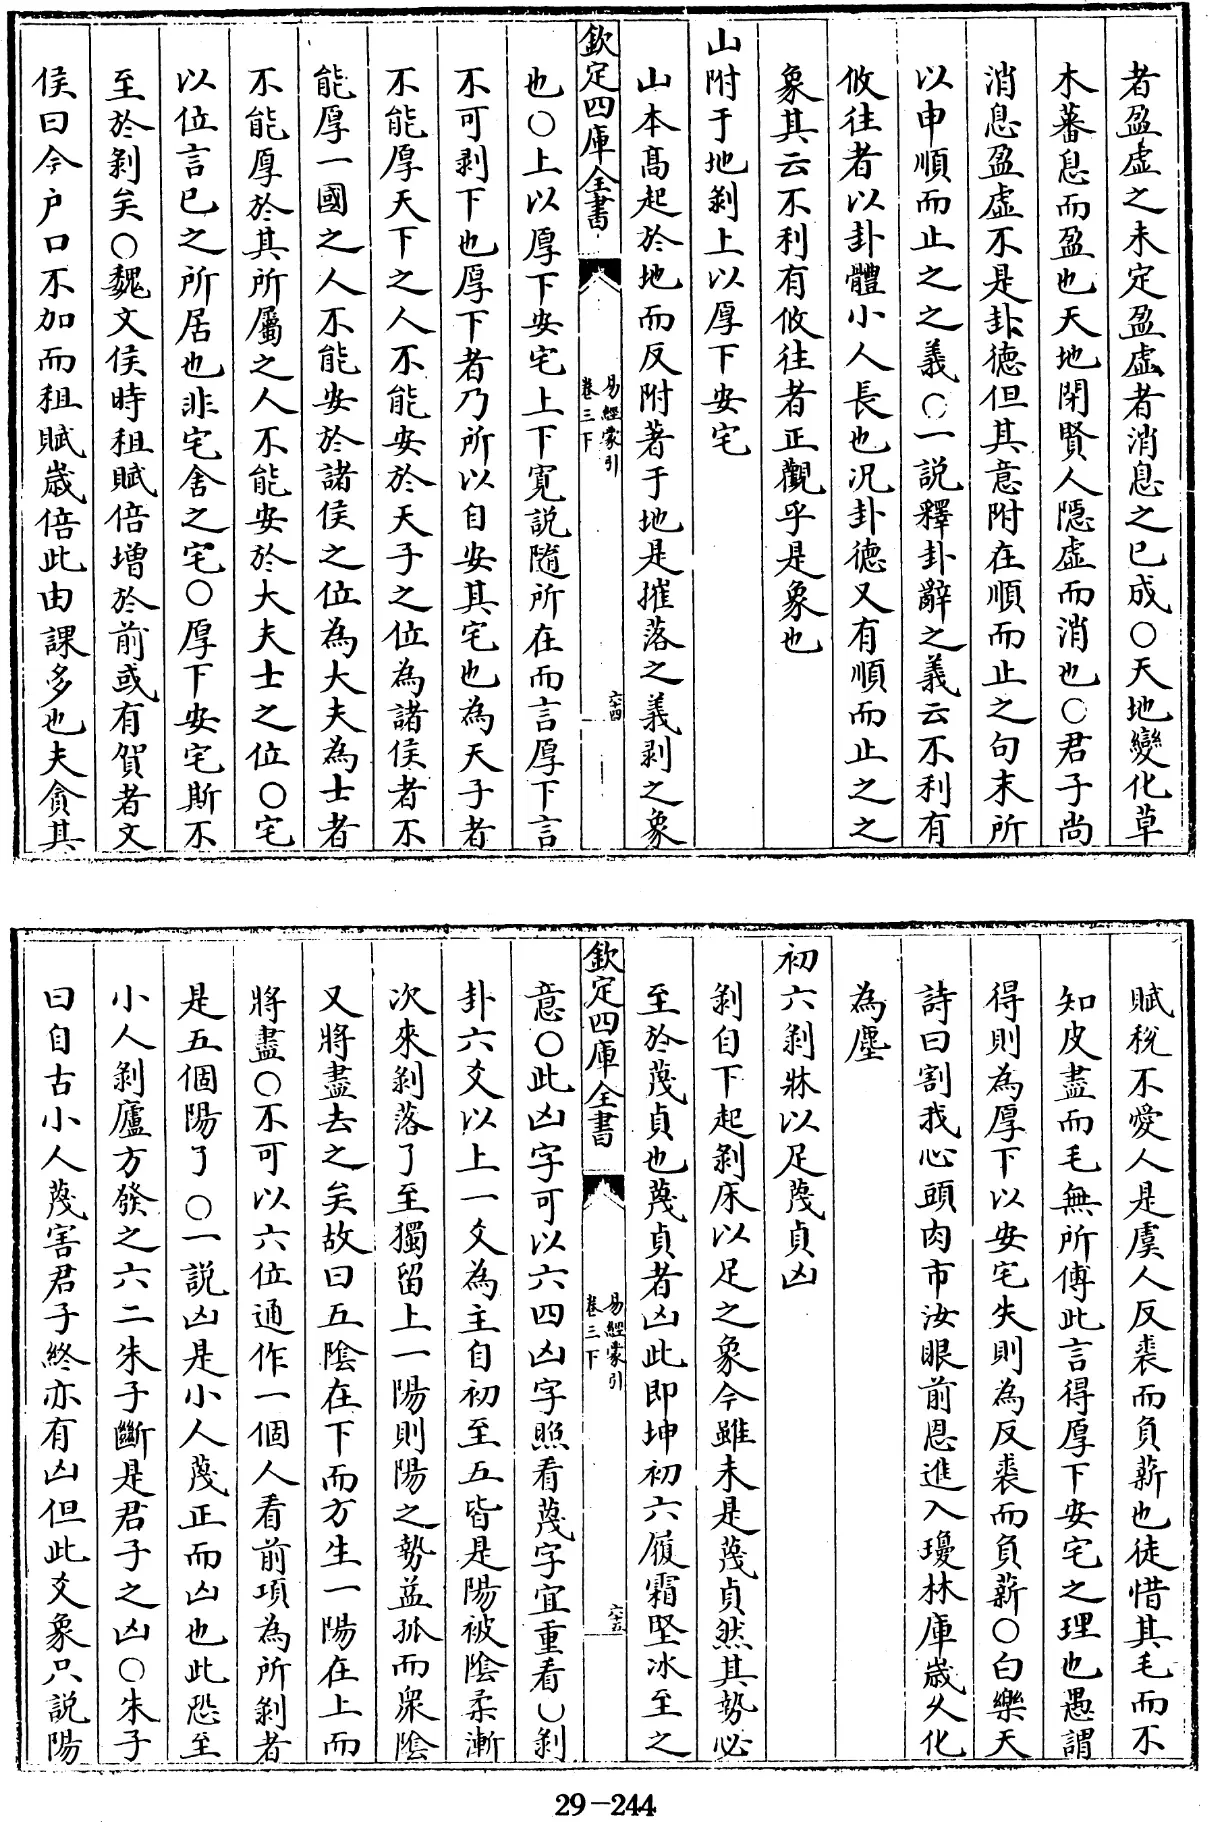 者盈虛之未定盈虛者消息之已成○天地變化草
木蕃息而盈也天地閉賢人隱虛而消也○君子尚
消息盈虛不是卦德但其意附在順而止之句末所
以申順而止之之義○一說釋卦辭之義云不利有
攸往者以卦體小人長也況卦德又有順而止之之
象其云不利有攸往者正觀乎是象也
山附于地剝上以厚下安宅
山本高起於地而反附著于地是摧落之義剝之象
欽定四庫全書
易經蒙引
卷三下
六十四
也○上以厚下安宅上下寬說隨所在而言厚下言
不可剥下也厚下者乃所以自安其宅也為天子者
不能厚天下之人不能安於天子之位為諸侯者不
能厚一國之人不能安於諸侯之位為大夫為士者
不能厚於其所屬之人不能安於大夫士之位○宅
以位言已之所居也非宅舍之宅○厚下安宅斯不
至於剝矣○魏文侯時租賦倍增於前或有賀者文
侯曰今户口不加而租賦歲倍此由課多也夫貪其
賦稅不愛人是虞人反裘而負薪也徒惜其毛而不
知皮盡而毛無所傅此言得厚下安宅之理也愚謂
得則為厚下以安宅失則為反裘而負薪○白樂天
詩曰割我心頭肉市汝眼前恩進入瓊林庫歲久化
為塵
初六剝牀以足蔑貞凶
剝自下起剝床以足之象今雖未是蔑貞然其勢必
至於蔑貞也蔑貞者凶此即坤初六履霜堅冰至之
欽定四庫全書
易經蒙引
卷三下
六十五
意○此凶字可以六四凶字照看蔑字宜重看○剝
卦六爻以上一爻為主自初至五皆是陽被陰柔漸
次來剝落了至獨留上一陽則陽之勢益孤而衆陰
又將盡去之矣故曰五陰在下而方生一陽在上而
將盡○不可以六位通作一個人看前項為所剝者
是五個陽了○一說凶是小人蔑正而凶也此恐至
小人剝廬方發之六二朱子斷是君子之凶○朱子
曰自古小人蔑害君子終亦有凶但此爻象只說陽
29-244